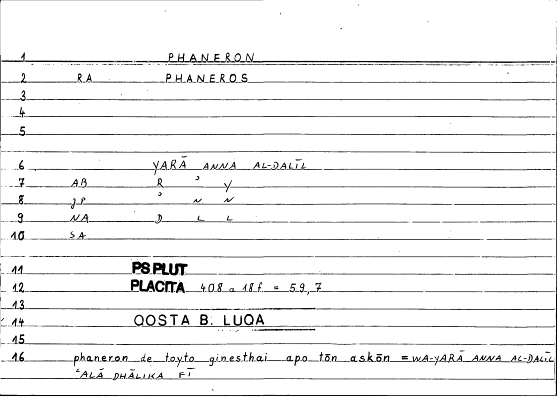 1 PHANERON
2 RA PHANEROS
3
4
5
6 YARĀ ANNA AL-DALĪL
7 AB R ʾ Y
8 JP ʾ N N
9 NA D L L
10 SA
11 PS.PLUT
12 PLACITA 408 a 18f = 59,7
13
14 QOSTA B. LUQA
15
16 phaneron de toyto ginesthai apo tōn askōn = WA-YARĀ ANNA AL-DALĪL
ʿALĀ DHĀLIKA FĪ